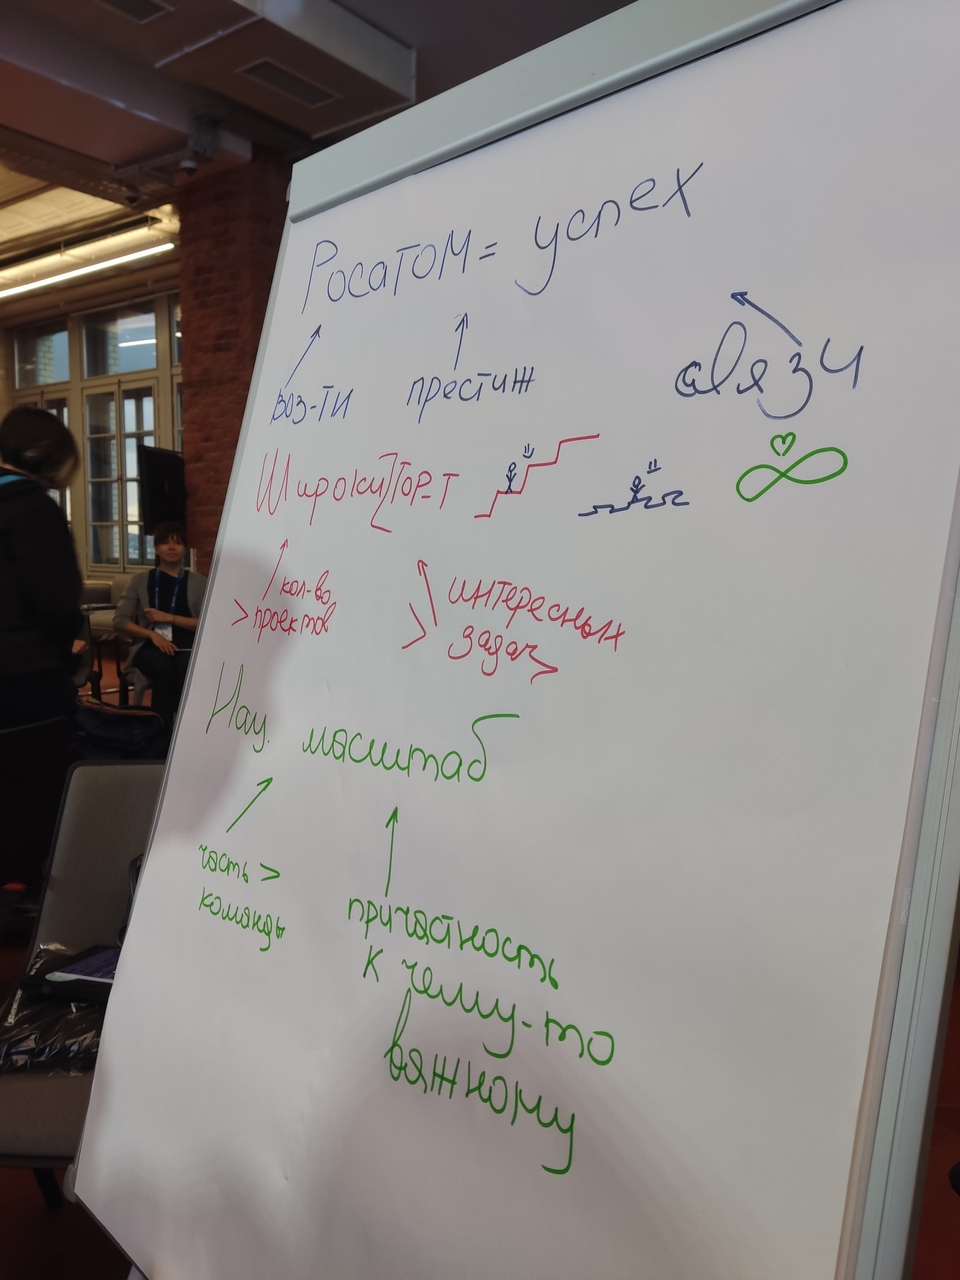 Росатом = успех
воз-ти престиж связи
Широкий гор-т
> кол-во
проектов
> интересных
задач
Нац. масштаб
часть >
команды
причастность
к чему-то
важному